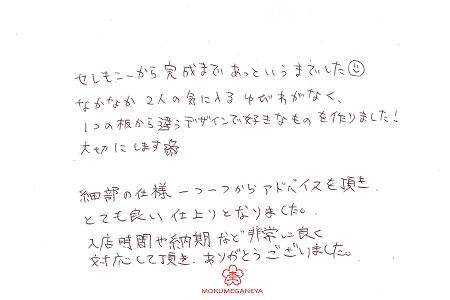 セレモニーから完成まであっというまでした
なかなか2人の気に入るゆびわがなく、
1つの板から違うデザインで好きなものを作りました!
大切にします
細部の仕様一つ一つからアドバイスを頂き、
とても良い仕上りとなりました。
入店時間や納期など非常に良く
対応して頂き、ありがとうございました。
MOKUMEGANEYA